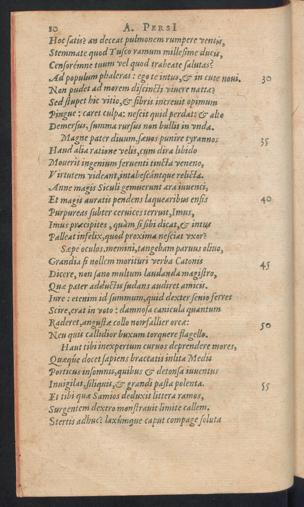 10 A. PERSI
Hoc satis? an deceat pulmonem rumpere ventis,
Stemmate quod Tusco ramum millesime ducis,
Censorémne tuum vel quod trabeate salutas?
Ad populum phaleras: ego te intus, & in cute noui. 30
Non pudet ad morem discincti viuere nattæ?
Sed stupet hic vitio, & fibris increuit opimum
Pingue: caret culpa: nescit quid perdat: & alto
Demersus, summa rursus non bullit in vnda.
Magne pater diuum, sæuos punire tyrannos 35
Haud alia ratione velis, cum dira libido
Mouerit ingenium feruenti tincta veneno,
Virtutem videant, intabescántque relicta.
Anne magis Siculi gemuerunt æra iuuenci,
Et magis auratis pendens laquearibus ensis 40
Purpureas subter ceruices terruit, Imus,
Imus præcipites, quàm si sibi dicat, & intus
Palleat infelix, quod proxima nesciat vxor?
Sæpe oculos, memini, tangebam paruus oliuo,
Grandia si nollem morituri verba Catonis 45
Dicere, non sano multum laudanda magistro,
Quæ pater adductis sudans audiret amicis.
Iure: etenim id summum, quid dexter senio ferret
Scire, erat in voto: damnosa canicula quantum
Raderet, angustæ collo non fallier orcæ: 50
Neu quis callidior buxum torquere flagello.
Haud tibi inexpertum curuos deprendere mores,
Quæque docet sapiens braccatis inlita Medis
Porticus insomnis, quibus & detonsa iuuentus
Inuigilat, siliquis, & grandi pasta polenta. 55
Et tibi quæ Samios deduxit littera ramos,
Surgentem dextro monstrauit limite callem.
Stertis adhuc? laxúmque caput compage soluta